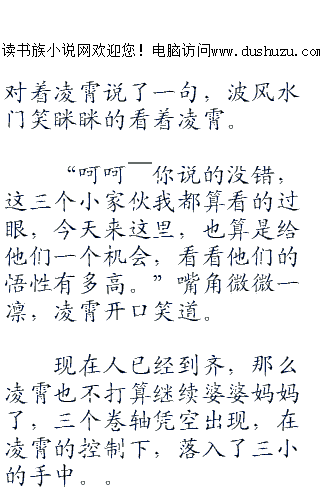 读书族小说网欢迎您！电脑访问www.dushuzu.com
对着凌霄说了一句，波风水
门笑眯眯的看着凌霄。
“呵呵￣你说的没错，
这三个小家伙我都算看的过
眼，今天来这里，也算是给
他们一个机会，看看他们的
悟性有多高。”嘴角微微一
凛，凌霄开口笑道。
现在人已经到齐，那么
凌霄也不打算继续婆婆妈妈
了，三个卷轴凭空出现，在
凌霄的控制下，落入了三小
的手中。。